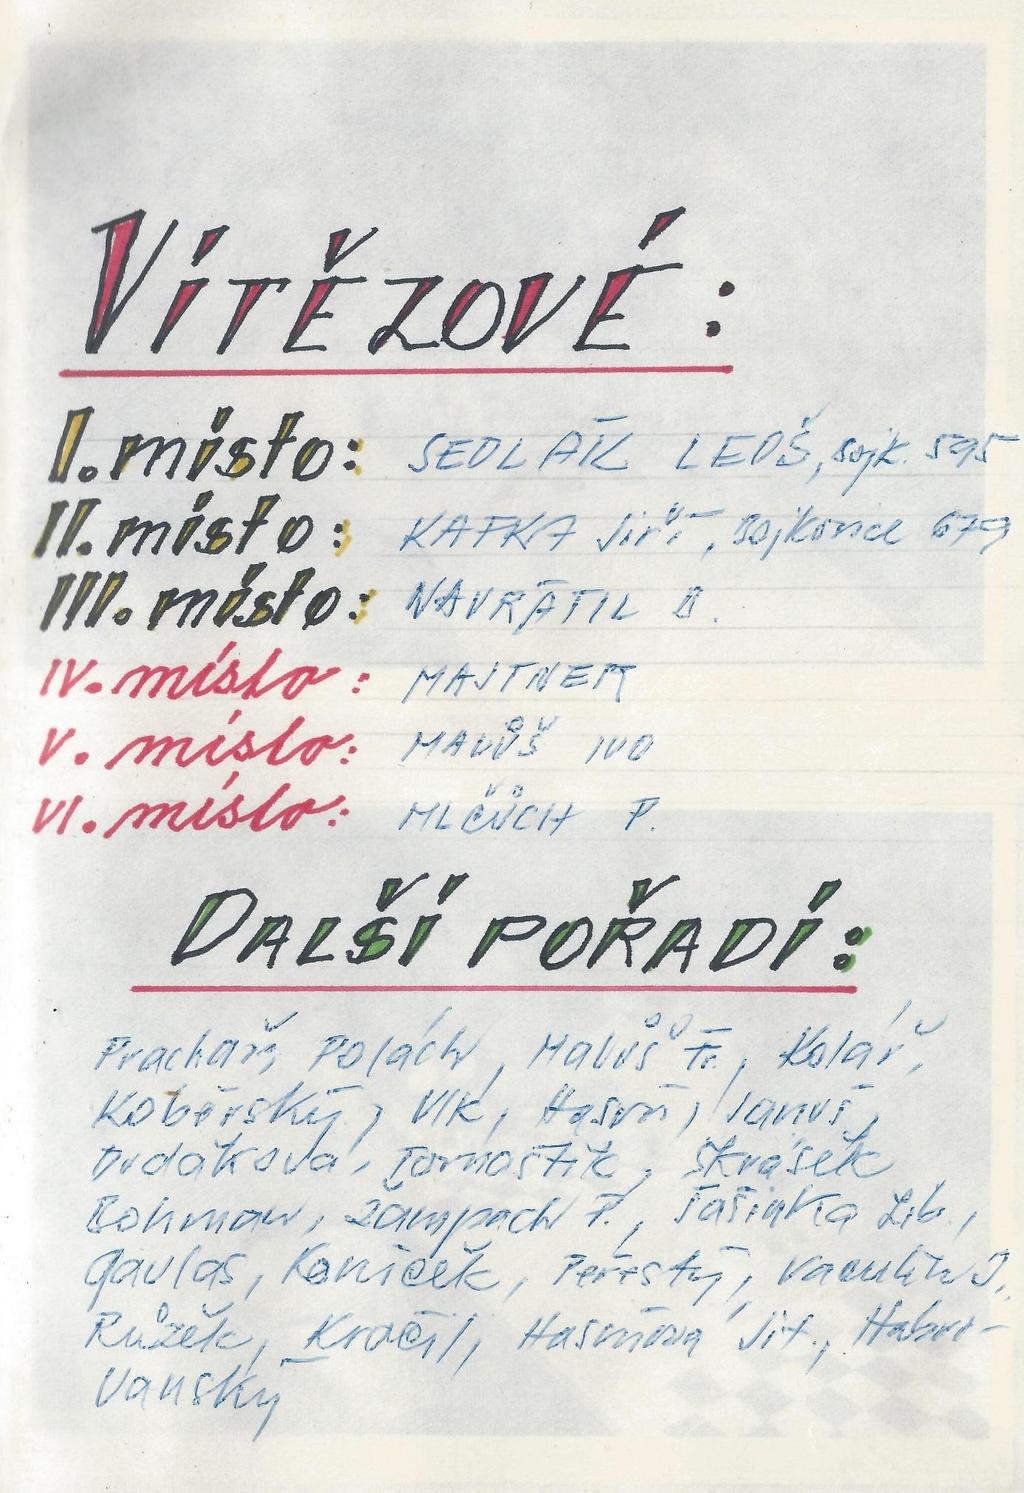 VÍTĚZOVÉ:
I. místo: SEDLÁK LEOŠ, Bojk. 595
II. místo: KAFKA Jiří, Bojkovice 679
III. místo: NAVRÁTIL B.
IV. místo: MAJTNER
V. místo: MALŮŠ IVO
VI. místo: MLČŮCH P.
DALŠÍ POŘADÍ:
Prachař, Polách, Malůš Fr., Kolář,
Koběrský, Vlk, Janůš,
Drdáková, Skrášek
Bohman, Žampach P., Tašinka Lib.,
Gavlas, Koníček, Peřestý, Vaculík J.
Růžek, Kráčil, Jit., Habro-
vanský